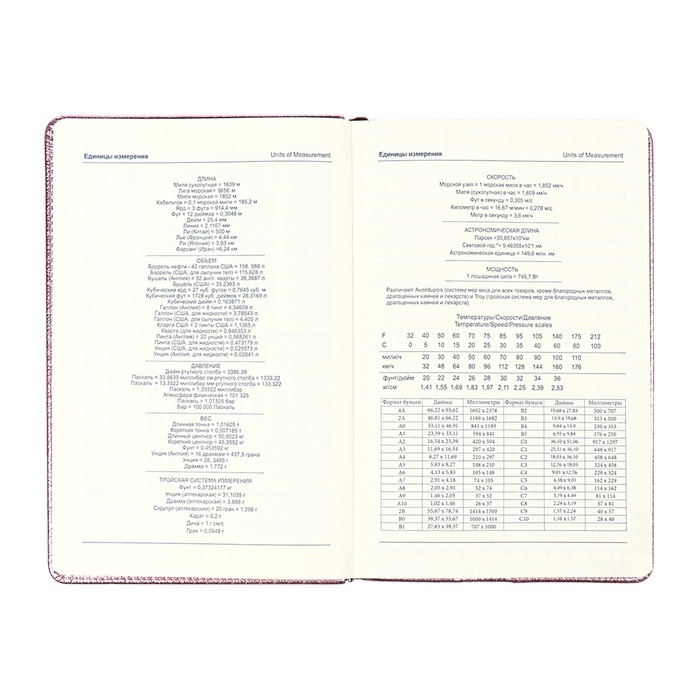 Единицы измерения Units of Measurement
ДЛИНА
Миля сухопутная = 1609 м
Лига морская = 5556 м
Миля морская = 1852 м
Кабельтов = 0.1 морской мили = 185,2 м
Ярд = 3 фута = 914,4 мм
Фут = 12 дюймов = 0,3048 м
Дюйм = 25,4 мм
Линия = 2.1167 мм
Ли (Китай) = 500 м
Лье (Франция) = 4,44 км
Ри (Япония) = 3,93 км
Фарсанг (Иран) =6,24 км
ОБЪЕМ
Баррель нефти - 42 галлона США = 158, 988 л
Баррель (США, для сыпучих тел) = 115,628 л
Бушель (Англия) = 32 англ. кварты = 36,3687 л
Бушель (США) = 35.2393 л
Кубический ярд = 27 куб. футов = 0,7645 куб. м
Кубический фут = 1728 куб. дюймов = 28,3169 л
Кубический дюйм = 0.163871 л
Галлон (Англия) = 8 пинт = 4.54609 л
Галлон (США, для жидкостей) = 3,78543 л
Галлон (США, для сыпучих тел) = 4.405 л
Кварта США = 2 пинты США = 1,1365 л
Кварта (для жидкости) = 0.946353 л
Пинта (Англия) = 20 унций = 0,568261 л
Пинта (США, для жидкости) = 0,473179 л
Унция (США, для жидкости) = 0,029573 л
Унция (Англия, для жидкости) = 0,02841 л
ДАВЛЕНИЕ
Дюйм ртутного столба = 3386.39
Паскаль = 33,8639 миллибар см ртутного столба = 1333,22
Паскаль = 13.3322 миллибар мм ртутного столба = 133,322
Паскаль = 1,33322 миллибар
Атмосфера физическая = 101 325
Паскаль = 1,01325 бар
Бар = 100 000 Паскаль
ВЕС
Длинная тонна = 1,01605 т
Короткая тонна = 0,907185 т
Длинный центнер = 50,8023 кг
Короткий центнер = 45,3592 кг
Фунт = 0,453592 кг
Унция (Англия) = 16 драхмам = 437,5 грана
Унция = 28, 3495 г
Драхма = 1,772 г
ТРОЙСКАЯ СИСТЕМА ИЗМЕРЕНИЯ
Фунт = 0,37324177 кг
Унция (аптекарская) = 31,1035 г
Драхма (аптекарский) = 3,888 г
Скрупул (аптекарский) = 20 гран = 1,296 г
Карат = 0,2 г
Дина = 1 г см/с
Гран = 0,0648 г
Единицы измерения Units of Measurement
СКОРОСТЬ
Морской узел = 1 морская миля в час = 1,852 км/ч
Миля (сухопутная) в час = 1,609 км/ч
Фут в секунду = 0,305 м/с
Километр в час = 16,67 м/мин = 0,278 м/с
Метр в секунду = 3,6 км/ч
АСТРОНОМИЧЕСКАЯ ДЛИНА
Световой год
Астрономическая единица = 149,6 млн. км
МОЩНОСТЬ
1 лошадиная сила = 745,7 Вт
Различают Avoirdupois (система мер веса для всех товаров, кроме благородных металлов,
драгоценных камней и лекарств) и Troy (тройская система мер для благородных металлов,
драгоценных камней и лекарств).
Температуры/Скорости/Давление
Temperature/Speed/Pressure scales
F 32 40 50 60 70 75 85 95 105 140 175 212
C 0 5 10 15 20 25 30 35 40 60 80 100
мили/ч 20 30 40 50 60 70 80 90 100 110
км/ч 32 48 64 80 96 112 128 144 160 176
фунт/дюйм 20 22 24 26 28 30 32 34 36
кг/см 1,41 1,55 1,69 1,83 1,97 2,11 2,25 2,39 2,53
Формат бумаги Дюймы Миллиметры Формат бумаги Дюймы Миллиметры
4A 66,22 x 93,62 1692 x 2378 B2 19,68 x 27,83 500 x 707
2A 46,81 x 66,22 1189 x 1692 B3 13,9 x 19,68 353 x 500
A0 33,11 x 46,81 841 x 1189 B4 9,84 x 13,9 250 x 353
A1 23,39 x 33,11 594 x 841 B5 6,93 x 9,84 176 x 250
A2 16,54 x 23,39 420 x 594 C0 36,10 x 51,06 917 x 1297
A3 11,69 x 16,54 297 x 420 C1 25,51 x 36,10 648 x 917
A4 8,27 x 11,69 210 x 297 C2 18,03 x 36,10 458 x 648
A5 5,83 x 8,27 148 x 210 C3 12,76 x 18,03 324 x 458
A6 4,13 x 5,83 105 x 148 C4 9,01 x 12,76 229 x 324
A7 2,91 x 4,18 74 x 105 C5 6,38 x 9,01 162 x 229
A8 2,05 x 2,91 52 x 74 C6 4,49 x 6,38 114 x 162
A9 1,46 x 2,05 37 x 52 C7 3,19 x 4,49 81 x 114
A10 1,02 x 1,46 26 x 37 C8 2,24 x 3,19 57 x 81
2B 55,67 x 78,74 1414 x 1500 C9 1,57 x 2,24 40 x 57
B0 39,37 x 55,67 1000 x 1414 C10 1,10 x 1,57 28 x 40
B1 27,83 x 39,37 707 x 1000